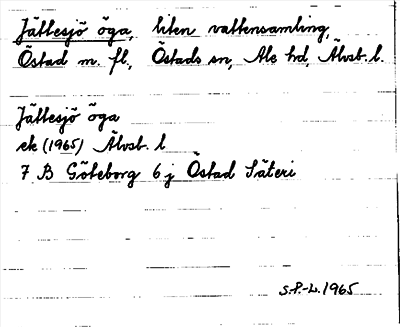 Jättesjö öga, liten vattensamling,
Östad m. fl., Östads sn, Ale hd, Älvsb. l.
Jättesjö öga
ek (1965) Älvsb. l
7 B Göteborg 6 j Östad Säteri
S.P.-L. 1965